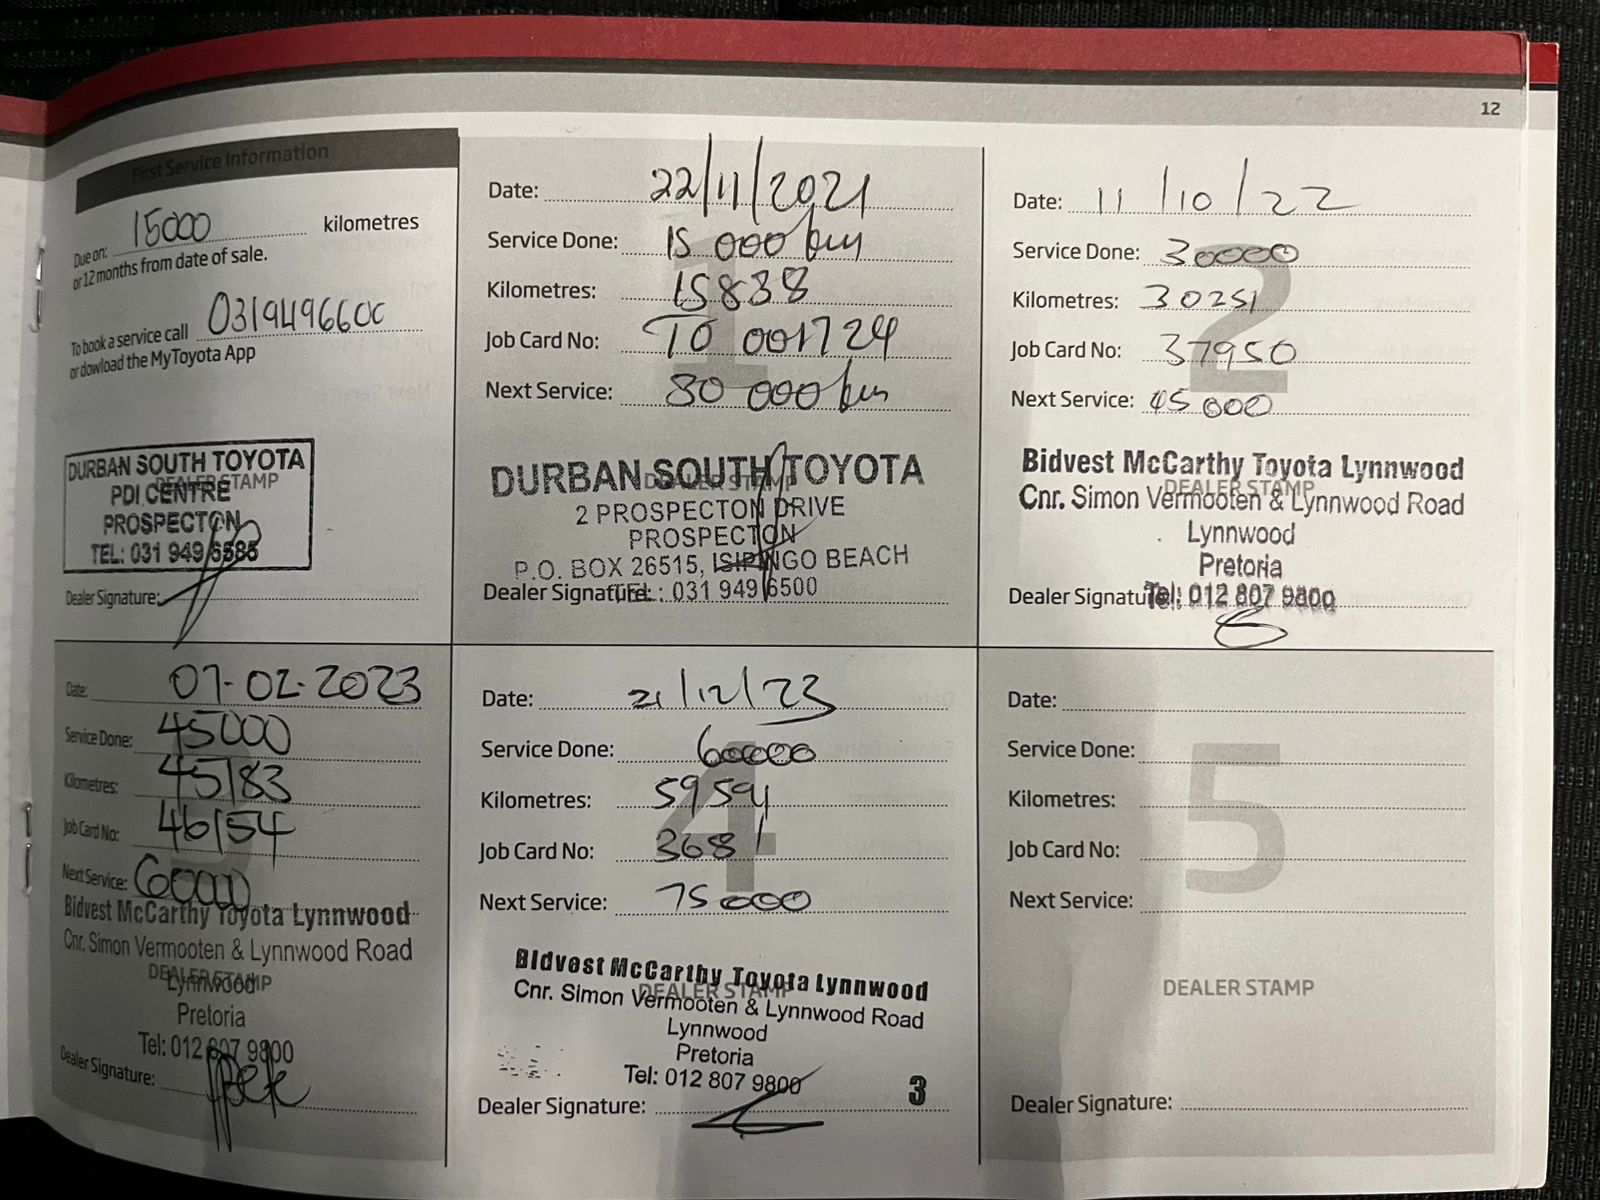 12
First Service Information
Due on: 15000 kilometres
or 12 months from date of sale.
To book a service call 0319496600
or dowload the MyToyota App
DURBAN SOUTH TOYOTA
DEALER STAMP
PDI CENTRE
PROSPECTON
TEL: 031 949 6585
Dealer Signature:
1
Date: 22/11/2021
Service Done: 15 000 km
Kilometres: 15838
Job Card No: TO 001724
Next Service: 30 000 km
DURBAN SOUTH TOYOTA
DEALER STAMP
2 PROSPECTON DRIVE
PROSPECTON
P.O. BOX 26515, ISIPINGO BEACH
TEL: 031 949 6500
Dealer Signature:
2
Date: 11/10/22
Service Done: 30000
Kilometres: 30251
Job Card No: 37950
Next Service: 45000
Bidvest McCarthy Toyota Lynnwood
DEALER STAMP
Cnr. Simon Vermooten & Lynnwood Road
Lynnwood
Pretoria
Tel: 012 807 9800
Dealer Signature:
Date: 07-02-2023
Service Done: 45000
Kilometres: 45183
Job Card No: 46154
Next Service: 60000
Bidvest McCarthy Toyota Lynnwood
Cnr. Simon Vermooten & Lynnwood Road
DEALER STAMP
Lynnwood
Pretoria
Tel: 012 807 9800
Dealer Signature:
4
Date: 21/12/23
Service Done: 60000
Kilometres: 59591
Job Card No: 3681
Next Service: 75000
Bidvest McCarthy Toyota Lynnwood
DEALER STAMP
Cnr. Simon Vermooten & Lynnwood Road
Lynnwood
Pretoria
Tel: 012 807 9800
3
Dealer Signature:
5
Date:
Service Done:
Kilometres:
Job Card No:
Next Service:
DEALER STAMP
Dealer Signature: